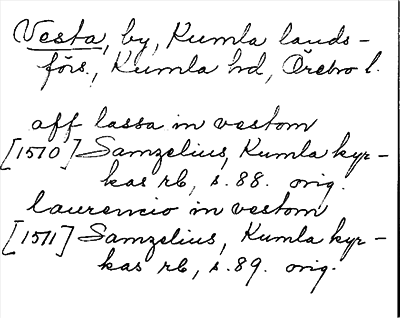 Vesta, by, Kumla lands-
förs., Kumla hd, Örebro l.
aff lassa in vestom
[1510] Samzelius, Kumla kyr-
kas rb, s. 88. orig.
laurencio in vestom
[1511] Samzelius, Kumla kyr-
kas rb, s. 89. orig.